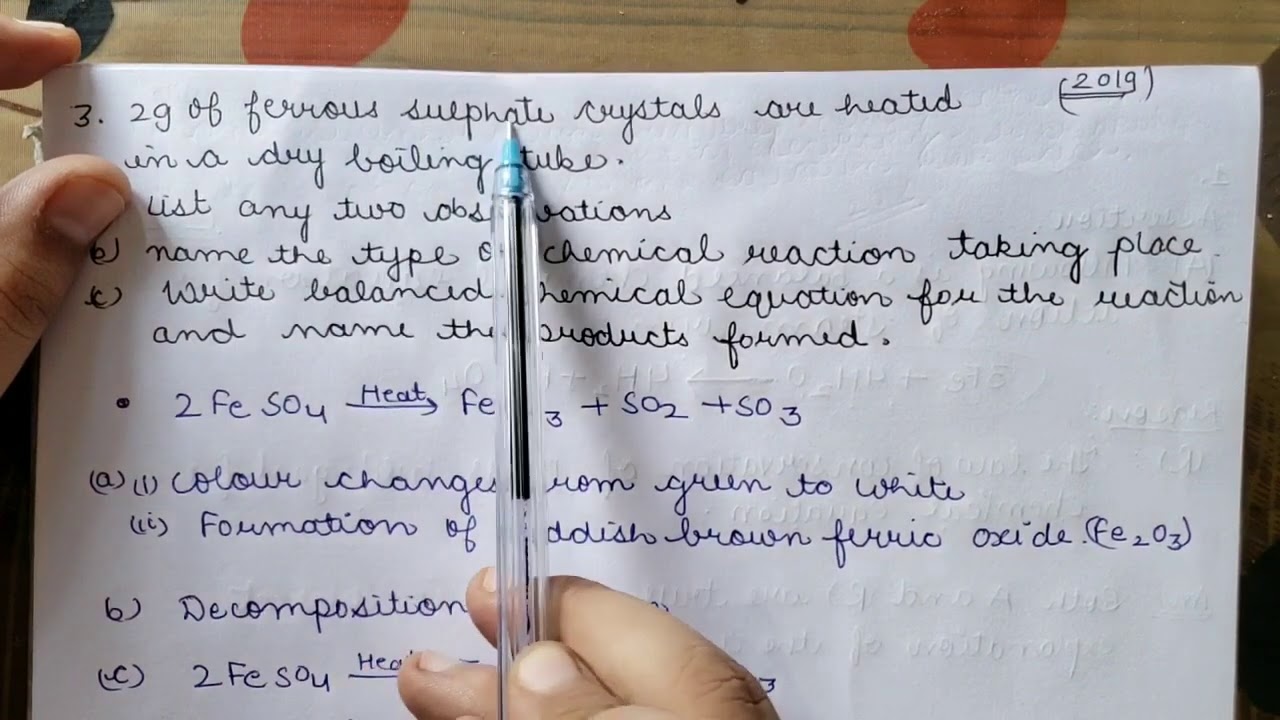 3. 2g of ferrous sulphate crystals are heated (2019)
in a dry boiling tube.
List any two obs vations
b) name the type o chemical reaction taking place.
c) Write balanced hemical equation for the reaction
and name the products formed.
• 2FeSO4 Heat → Fe 3 + SO2 + SO3
(a) (i) Colour changes rom green to white
(ii) Formation of ddish brown ferric oxide. (Fe2O3)
b) Decomposition
(c) 2FeSO4 Heat 3